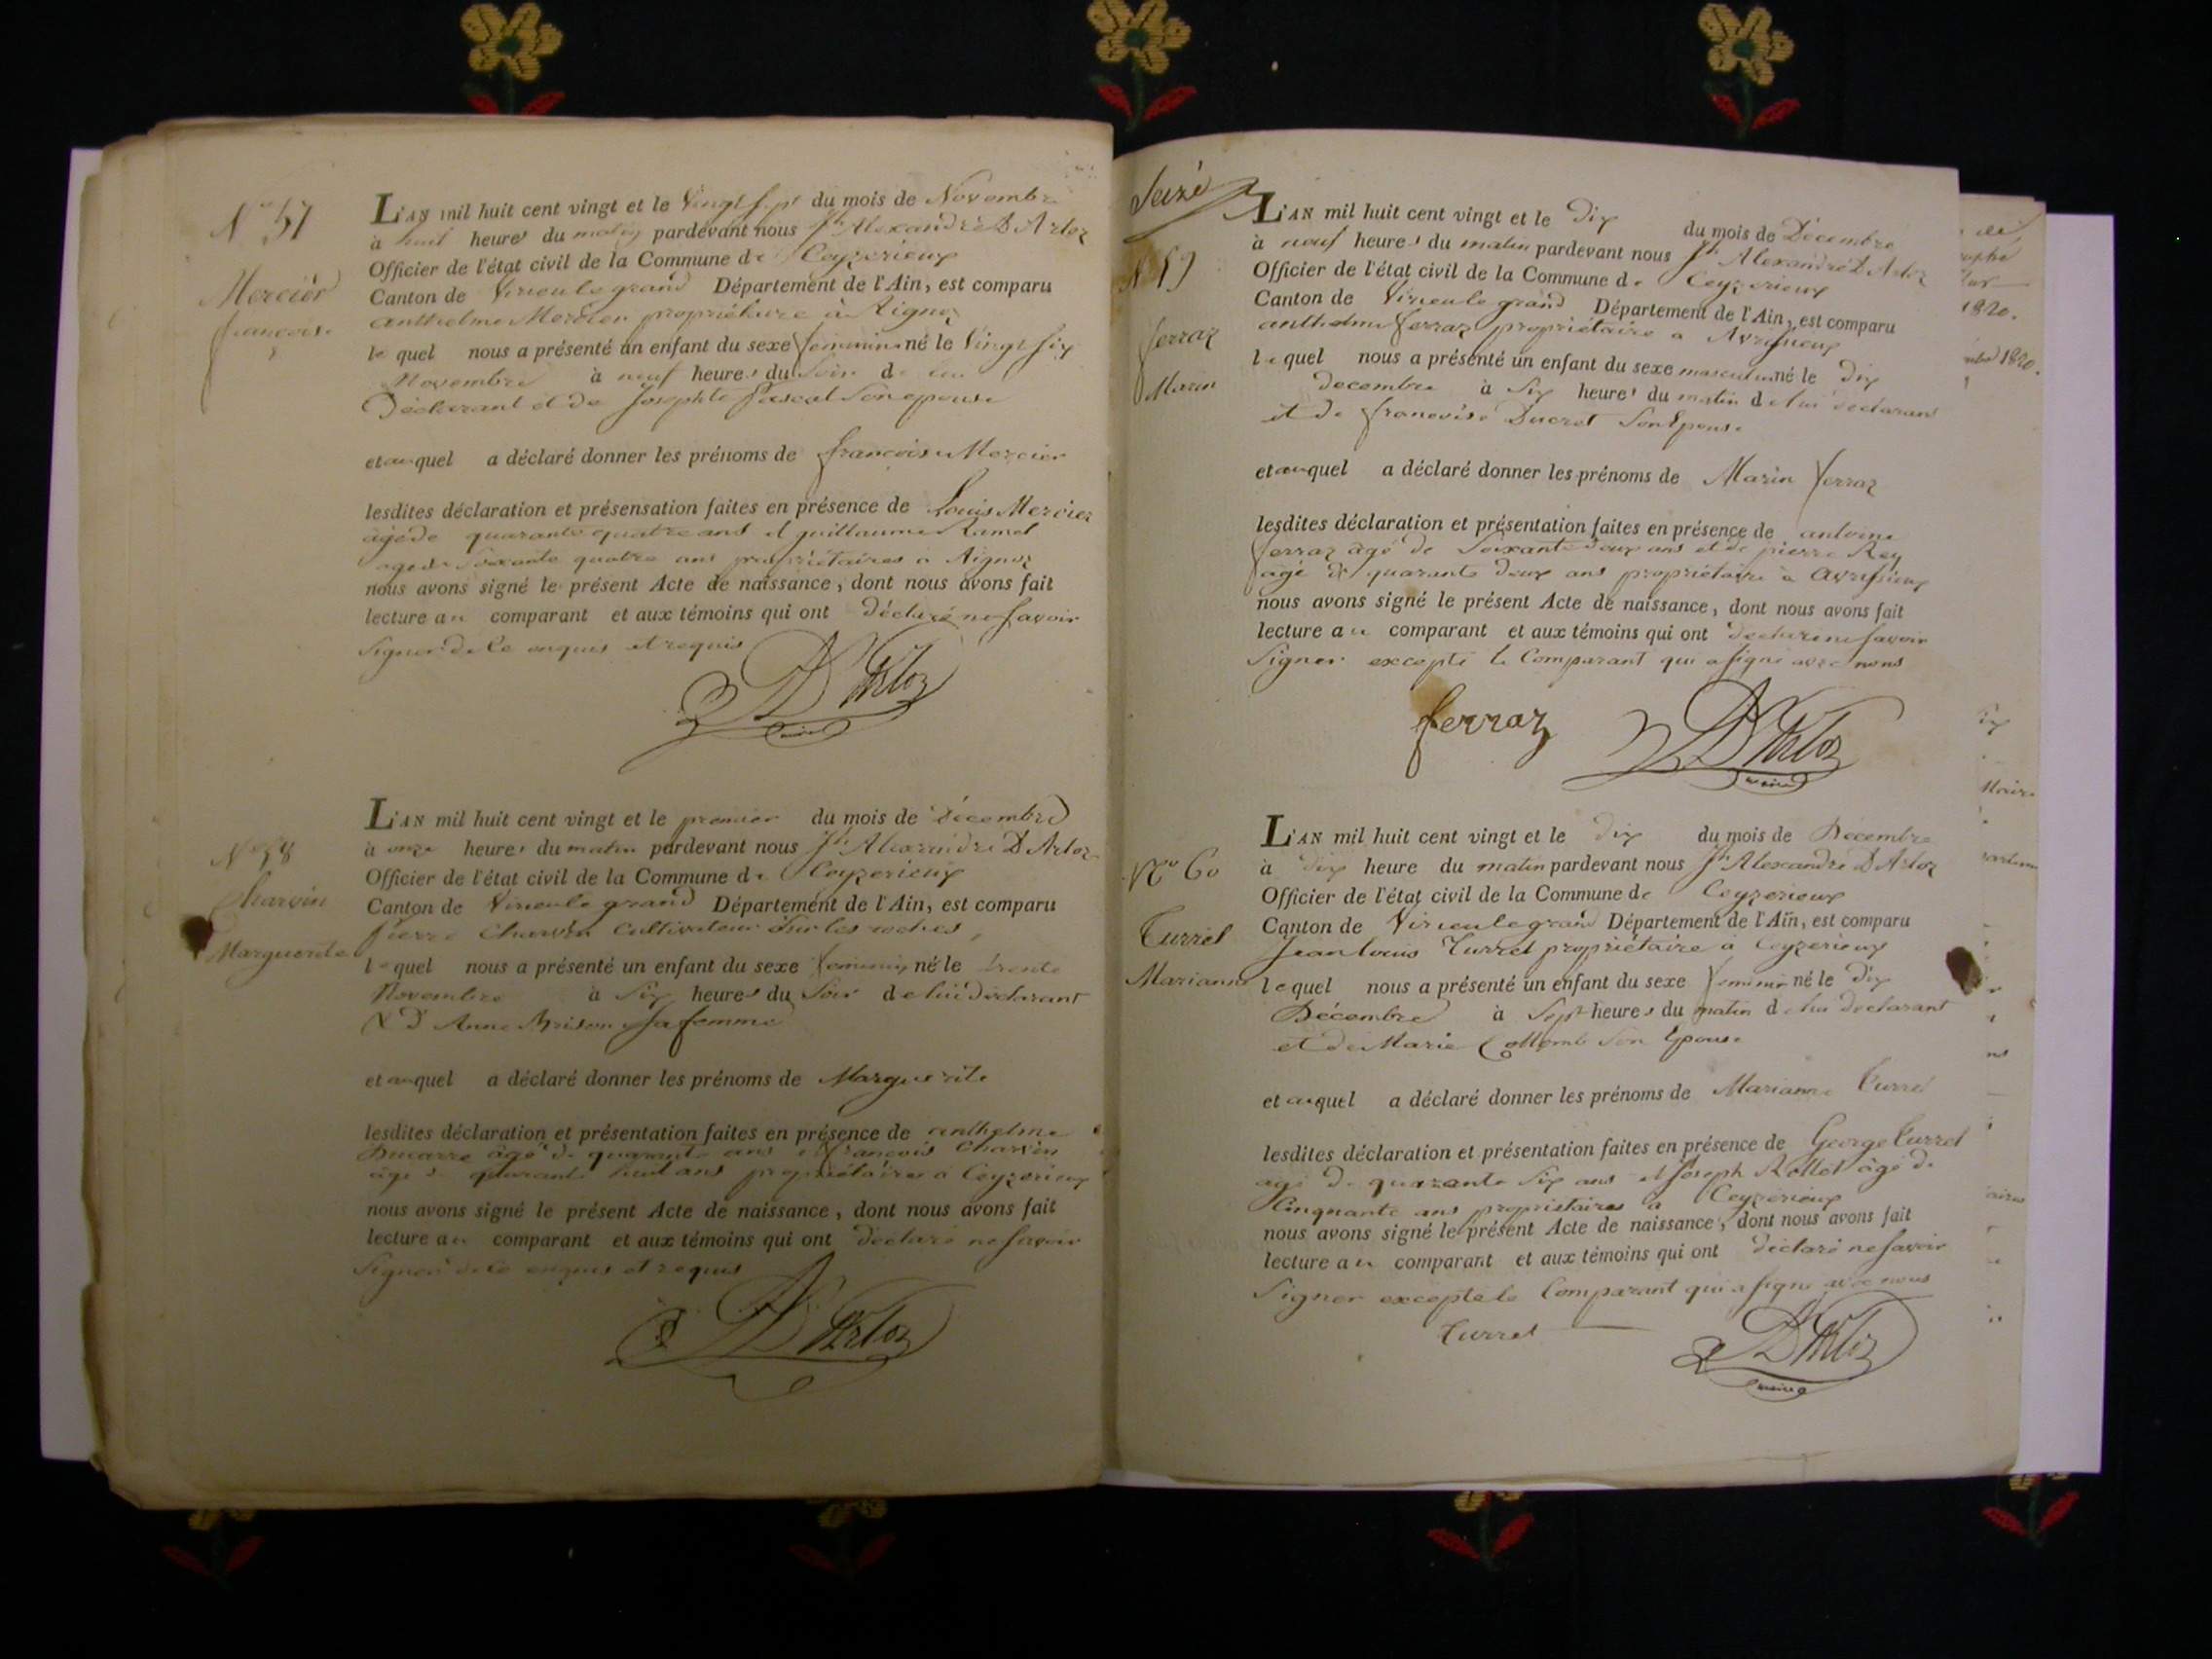 N° 57
Mercier
françoise
L'AN mil huit cent vingt et le Vingt sept du mois de Novembre
à huit heures du matin pardevant nous Jh Alexandre D Arloz
Officier de l'état civil de la Commune de Ceyzerieux
Canton de Virieulegrand Département de l'Ain, est comparu
anthelme Mercier propriétaire à Aignoz
lequel nous a présenté un enfant du sexe feminin né le Vingt six
Novembre à neuf heures du Soir de lui
Déclarant et de Josephte Pascal Son epouse
et auquel a déclaré donner les prénoms de françoise Mercier
lesdites déclaration et présensation faites en présence de Louis Mercier
âgé de quarante quatre ans et guillaume Ramel
age de Soixante quatre ans propriétaires à Aignoz
nous avons signé le présent Acte de naissance, dont nous avons fait
lecture au comparant et aux témoins qui ont déclaré ne savoir
Signer de ce enquis et requis
D Arloz
maire
N° 58
Charvin
Marguerite
L'AN mil huit cent vingt et le premier du mois de Décembre
à onze heures du matin pardevant nous Jh Alexandre D Arloz
Officier de l'état civil de la Commune de Ceyzerieux
Canton de Virieulegrand Département de l'Ain, est comparu
pierre Charvin Cultivateur Sur les roches,
lequel nous a présenté un enfant du sexe feminin né le trente
Novembre à Six heures du Soir de lui déclarant
& D'Anne Brison Sa femme
et auquel a déclaré donner les prénoms de Marguerite
lesdites déclaration et présentation faites en présence de anthelme
Ducarre âgé de quarante ans et françois Charvin
âgé de quarante huit ans propriétaires à Ceyzerieux
nous avons signé le présent Acte de naissance, dont nous avons fait
lecture au comparant et aux témoins qui ont déclaré ne savoir
Signer de ce enquis et requis
D Arloz
Seizé
N° 59
ferraz
Marin
L'AN mil huit cent vingt et le dix du mois de Décembre
à neuf heures du matin pardevant nous Jh Alexandre D Arloz
Officier de l'état civil de la Commune de Ceyzerieux
Canton de Virieulegrand Département de l'Ain, est comparu
anthelme ferraz propriétaire a Avrissieux
lequel nous a présenté un enfant du sexe masculin né le dix
decembre à Six heures du matin de lui declarant
et de francoise Ducret Son Epouse
et auquel a déclaré donner les prénoms de Marin ferraz
lesdites déclaration et présentation faites en présence de antoine
ferraz âgé de Soixante deux ans et de pierre Rey
âgé de quarante deux ans propriétaire à avrissieux
nous avons signé le présent Acte de naissance, dont nous avons fait
lecture au comparant et aux témoins qui ont declaré ne savoir
Signer excepté le Comparant qui a signé avec nous
ferraz D Arloz
maire
N° 60
Turrel
Marianne
L'AN mil huit cent vingt et le dix du mois de Décembre
à dix heure du matin pardevant nous Jh Alexandre D Arloz
Officier de l'état civil de la Commune de Ceyzerieux
Canton de Virieulegrand Département de l'Ain, est comparu
Jean louis Turrel propriétaire à Ceyzerieux
lequel nous a présenté un enfant du sexe feminin né le dix
Décembre à Sept heures du matin de lui declarant
et de Marie Collomb Son Epouse
et auquel a déclaré donner les prénoms de Marianne Turrel
lesdites déclaration et présentation faites en présence de George Turrel
agé de quarante Six ans et Joseph Rollet âgé de
Cinquante ans propriétaires à Ceyzerieux
nous avons signé le présent Acte de naissance, dont nous avons fait
lecture au comparant et aux témoins qui ont déclaré ne savoir
Signer excepté le Comparant qui a signé avec nous
Turrel D Arloz
maire
1820.
1820.
Maire